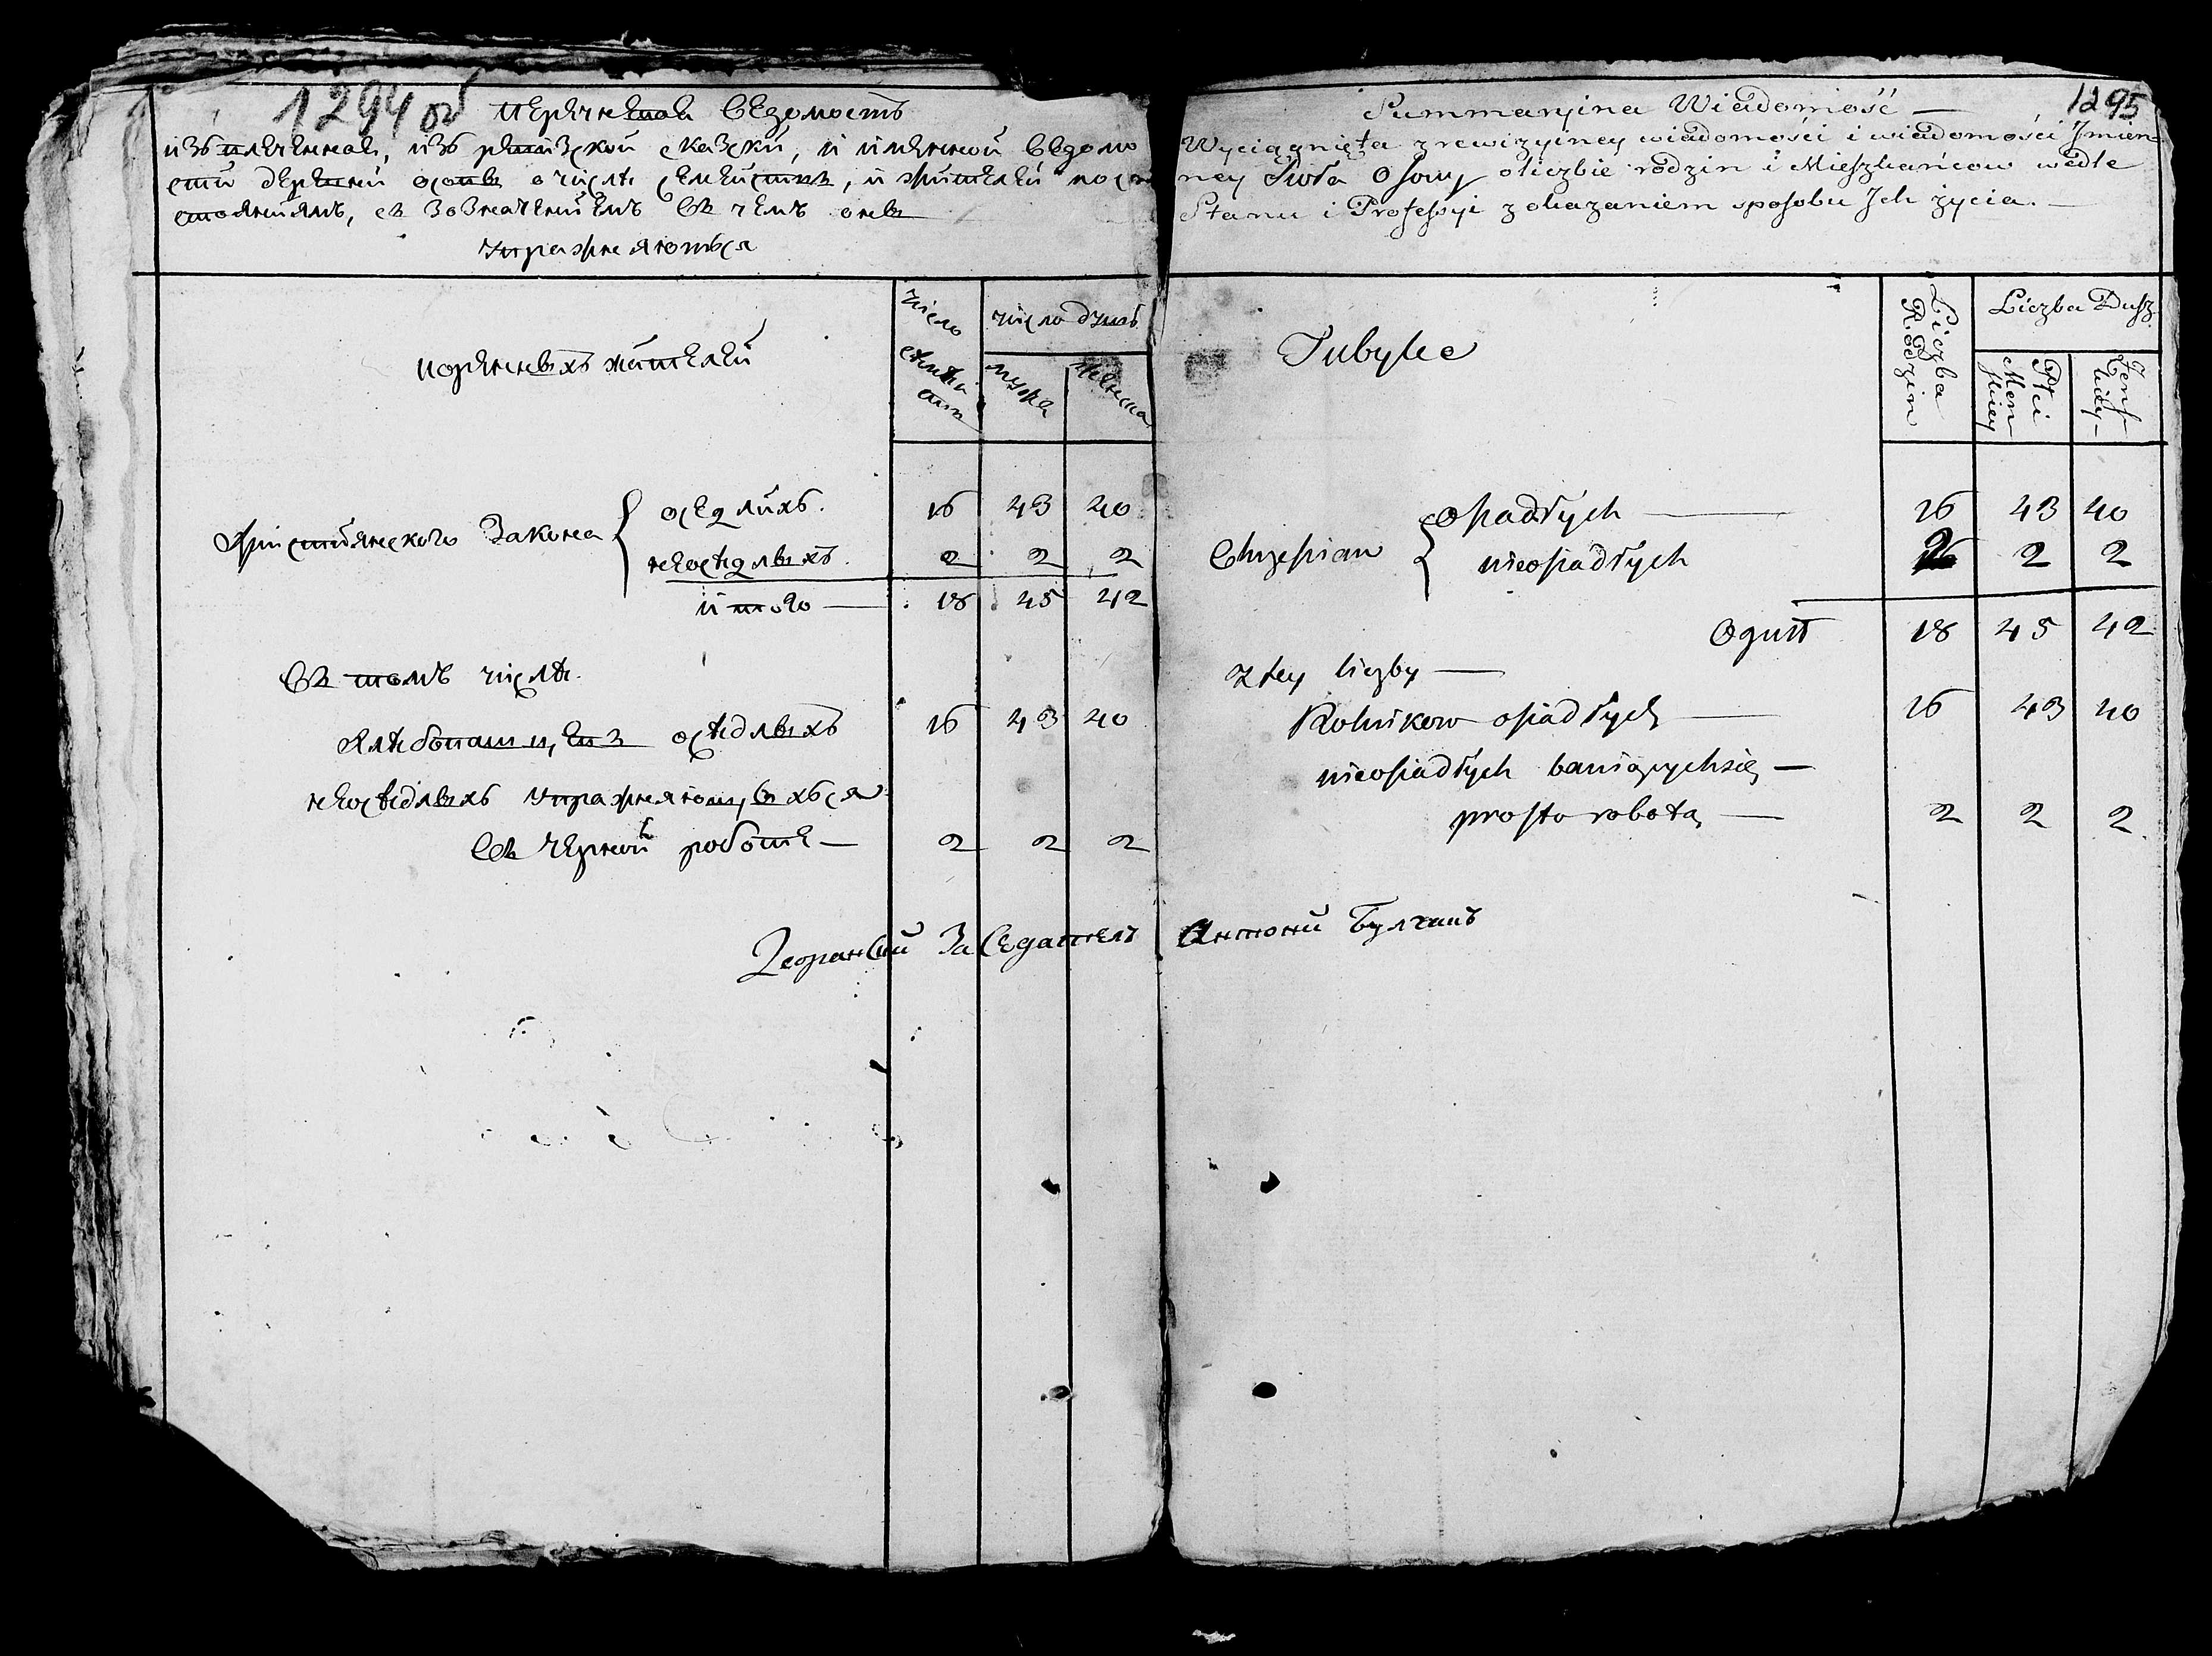 1294 об
перечневая ведомость
извлеченная, изъ ревизской сказски, и имянной ведомо
сти деревни осовы о числѣ семействъ, и жителей по со
стоянiямъ, съ означенiемъ въ чемъ оны
упражняются
коренныхъ жителей
число семей ств
число душъ
мужска
женска
Христiянского закона
оседлихъ. 16 43 40
неосѣдлыхъ. 2 2 2
итого — 18 45 42
въ томъ числѣ.
хлѣбопашцевъ осѣдлыхъ 16 43 40
неосѣдлыхъ упражняющыхъся
въ черной работе — 2 2 2
Дворанский Заседатель Антони
1295
Summaryina Wiadomość —
Wyciągnięta z rewizyiney wiadomości i wiadomości Jmien
ney Sioła Osowy o liczbie rodzin i Mieszkańcow wedle
Stanu i Professyi z okazaniem sposobu Jch życia. —
Tubylce
Liczba Rodzin
Liczba Dusz
Płci Men skiey
Żeńskiey
Chrześcian
Osiadłych — 16 43 40
nieosiadłych 2 2 2
Oguł 18 45 42
z tey liczby —
Rolnikow osiadłych — 16 43 40
nieosiadłych bawiących się —
prosto robotą — 2 2 2